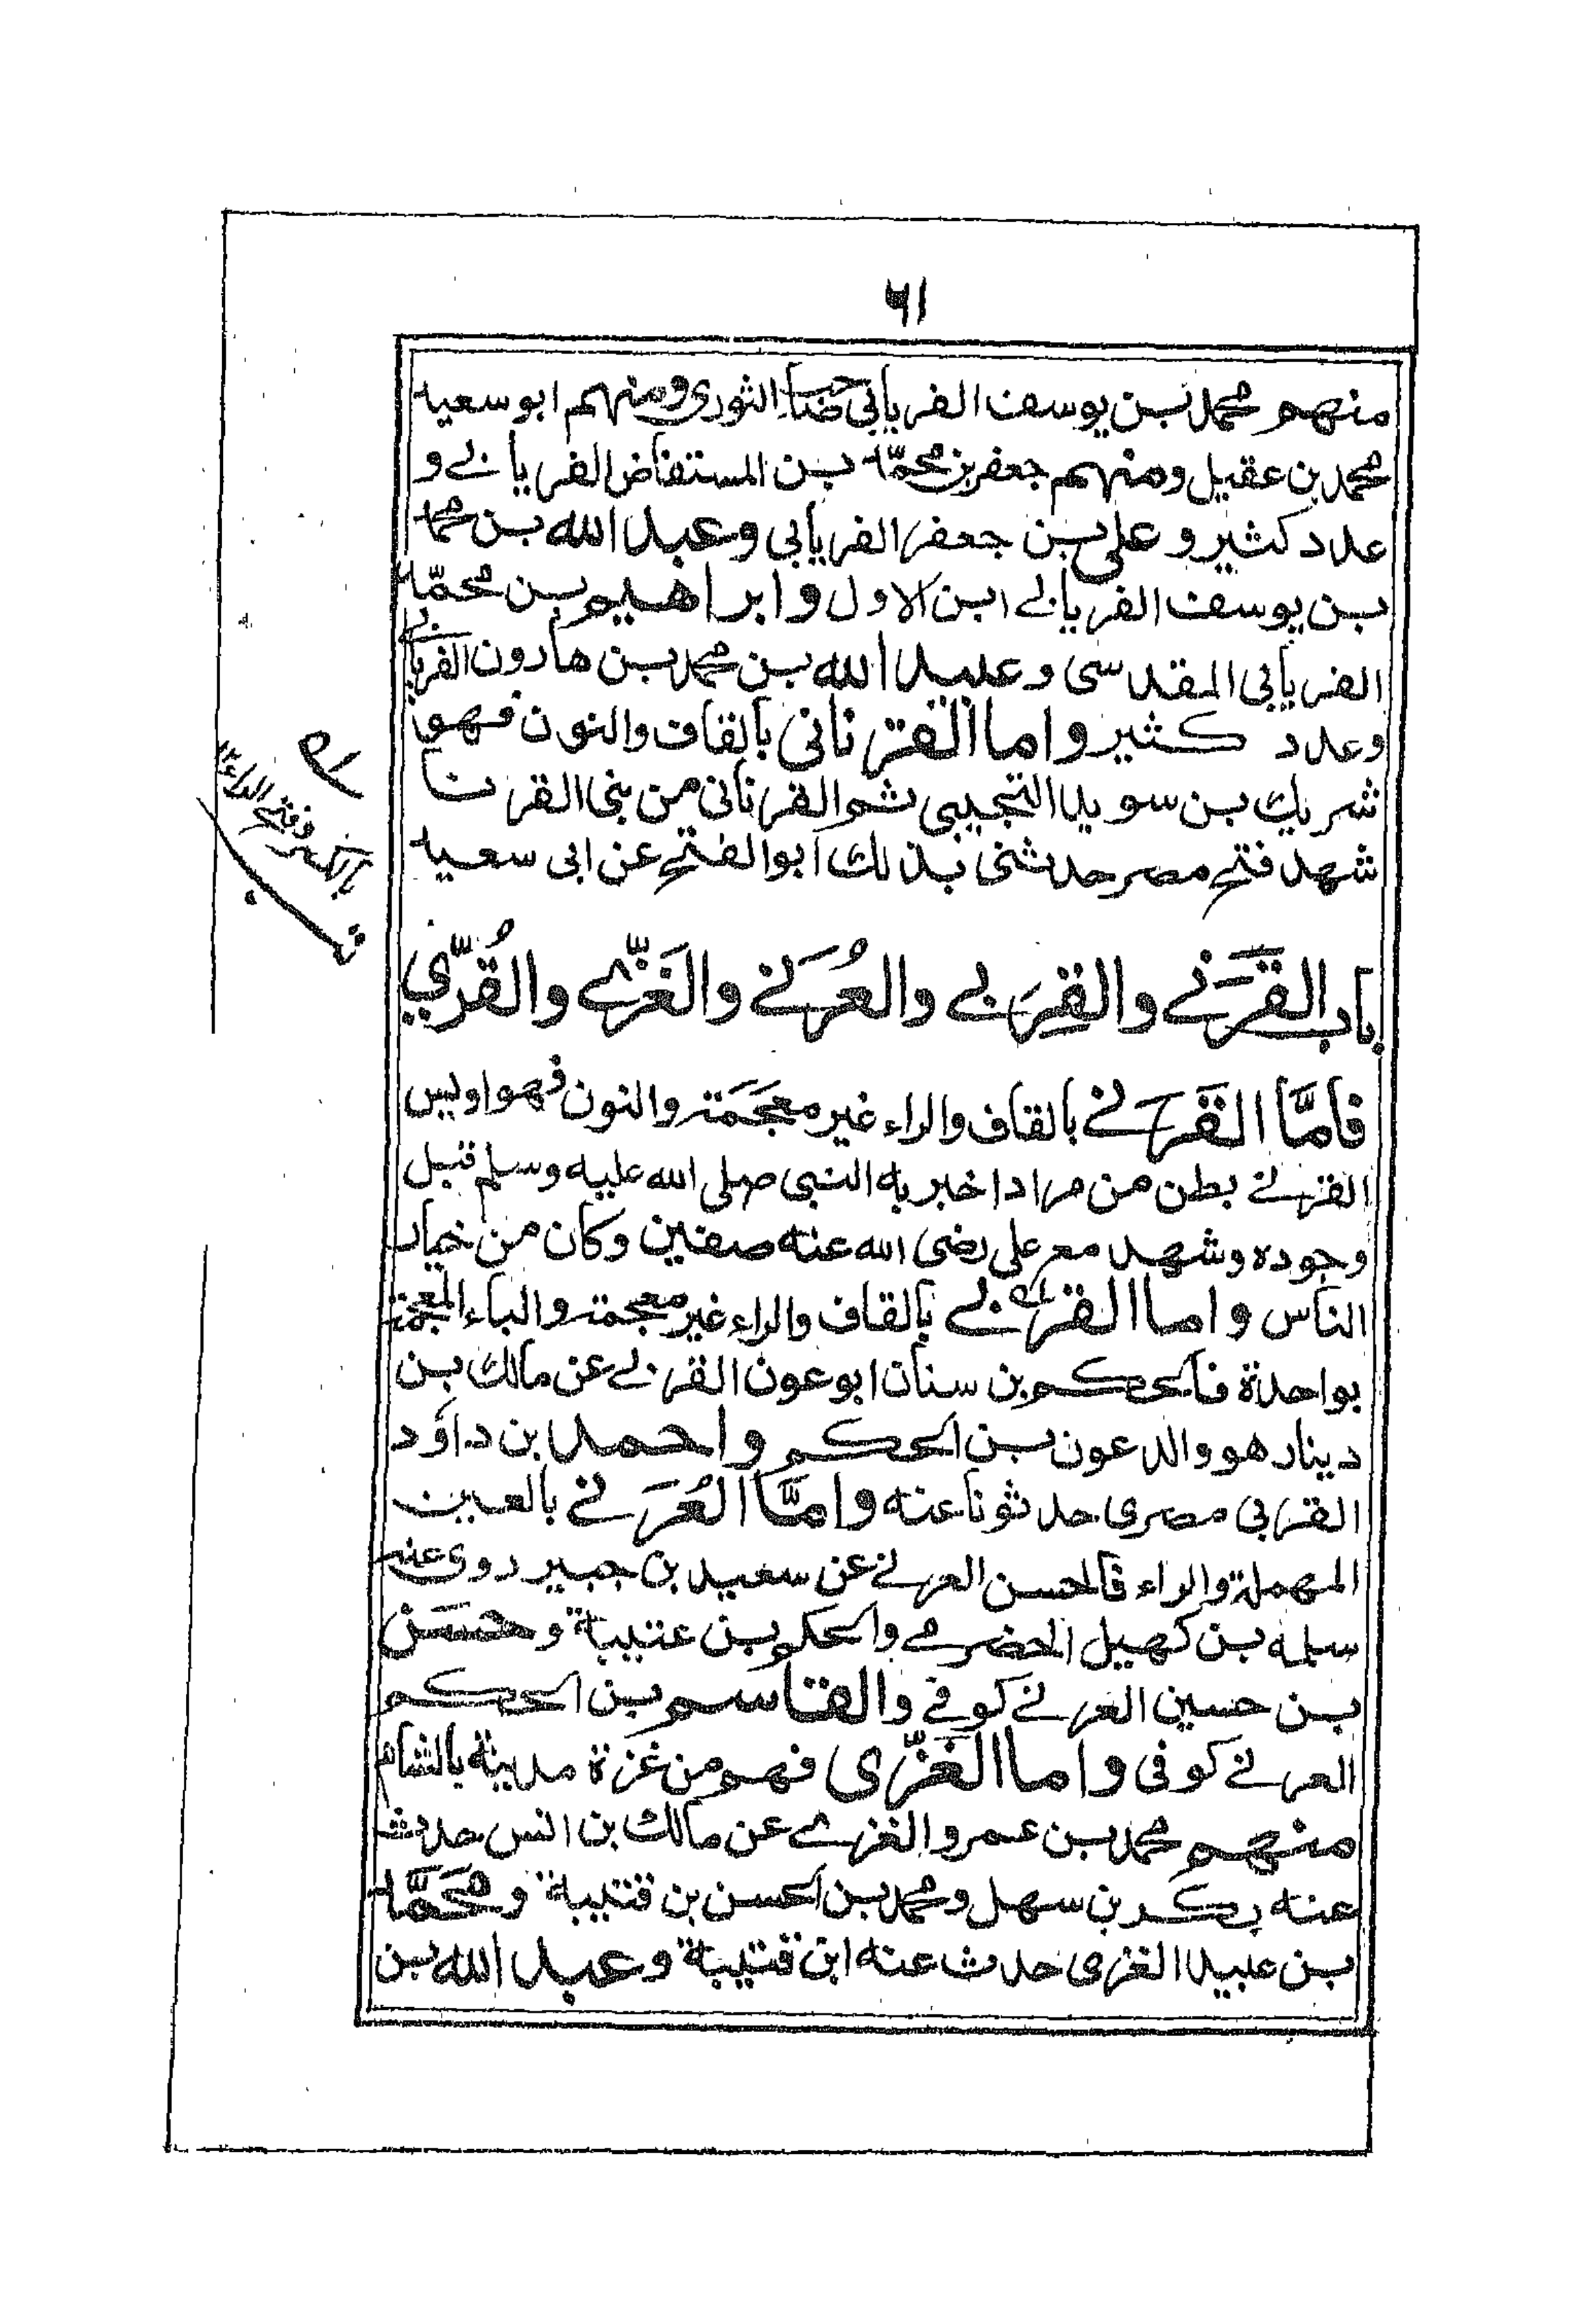 ٦١
منهم محمد بن يوسف الفريابي صاحب الثوري ومنهم ابو سعيد
محمد بن عقيل ومنهم جعفر بن محمّد بن المستفاض الفريابي و
عدد كثير و علي بن جعفر الفريابي وعبد الله بن محمد
بن يوسف الفريابي ابن الاول وابراهيم بن محمّد
الفريابي المقدسي وعبيد الله بن محمد بن هارون الفريابي
وعدد كثير واما القرناني بالقاف والنون فهو
شريك بن سويد التجيبي ثم القرناني من بني القرنا
شهد فتح مصر حدثني بذلك ابو الفتح عن ابي سعيد
باب القَرَني والقِرَبي والعُرَني والغَزّي والقُرّي
فامَّا القَرَني بالقاف والراء غير معجَمَة والنون فهو اويس
القرني بطن من مراد اخبر به النبي صلى الله عليه وسلم قبل
وجوده وشهد مع علي رضى الله عنه صفين وكان من خيار
الناس واما القربي بالقاف والراء غير معجمة والباء المعجمة
بواحدة فالحكم بن سنان ابو عون القربي عن مالك بن
دينار هو والد عون بن الحكم واحمد بن داؤد
القربي مصرى حدثونا عنه وامَّا العُرَني بالعين
المهملة والراء فالحسن العرني عن سعيد بن جبير روى عنه
سلمه بن كهيل الحضرمي والحكم بن عتيبة وحسَن
بن حسين العرني كوفي والقاسم بن الحكم
العرني كوفى واما الغَزّى فهو من غزة مدينة بالشام
منهم محمد بن عمرو الغزي عن مالك بن انس حدث
عنه بكر بن سهل ومحمد بن الحسن بن قتيبة ومحَمَّد
بن عبيد الغزى حدث عنه ابن قتيبة وعبد الله بن
بالكسر وفتح الراء ١٢